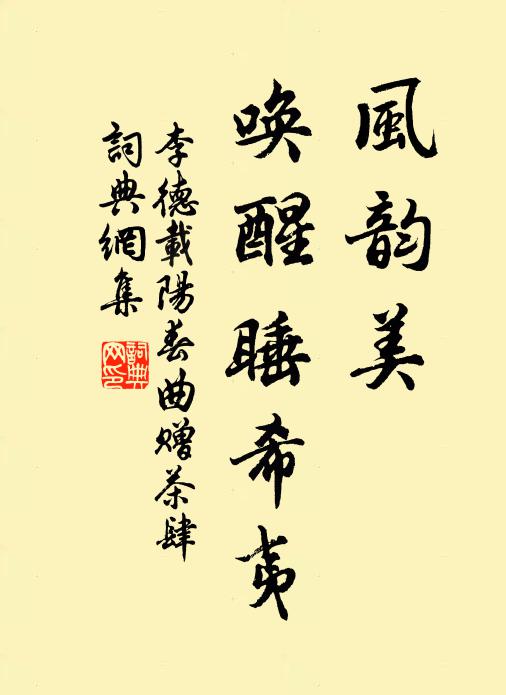 風韵美
喚醒睡希夷
李德載陽春曲贈茶肆
詞典網集
詞典網印